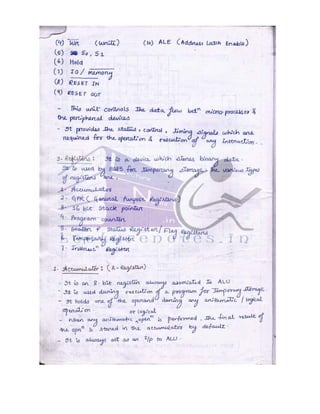 (4) WR (write) (10) ALE (Address Latch Enable)
(5) S0, S1
(6) Hold
(7) IO / memory
(8) RESET IN
(9) RESET OUT
- This unit controls the data flow betn micro processor &
the peripheral devices
- It provides the status, control, timing signals which are
required for the operation & execution of any instruction.
3. Registers : It is a device which stores binary data.
It is used by 8085 for temporary storage. The various types
of registers are.
1. Accumulator
2. GPR ( General Purpose Registers)
3. 16 bit Stack pointer
4. Program counter
5. Status Registers / Flag Registers
6. Temporary Register
7. Instruction Register
1. Accumulator : (A - Register)
- It is an 8 bit register always associated to ALU
- It is used during execution of a program for temporary storage
- It holds one of the operand during any arithmetic / logical
operation or logical
- When any arithmetic opern is performed, the final result of
the opn is stored in the accumulator by default.
- It is always act as an I/p to ALU.